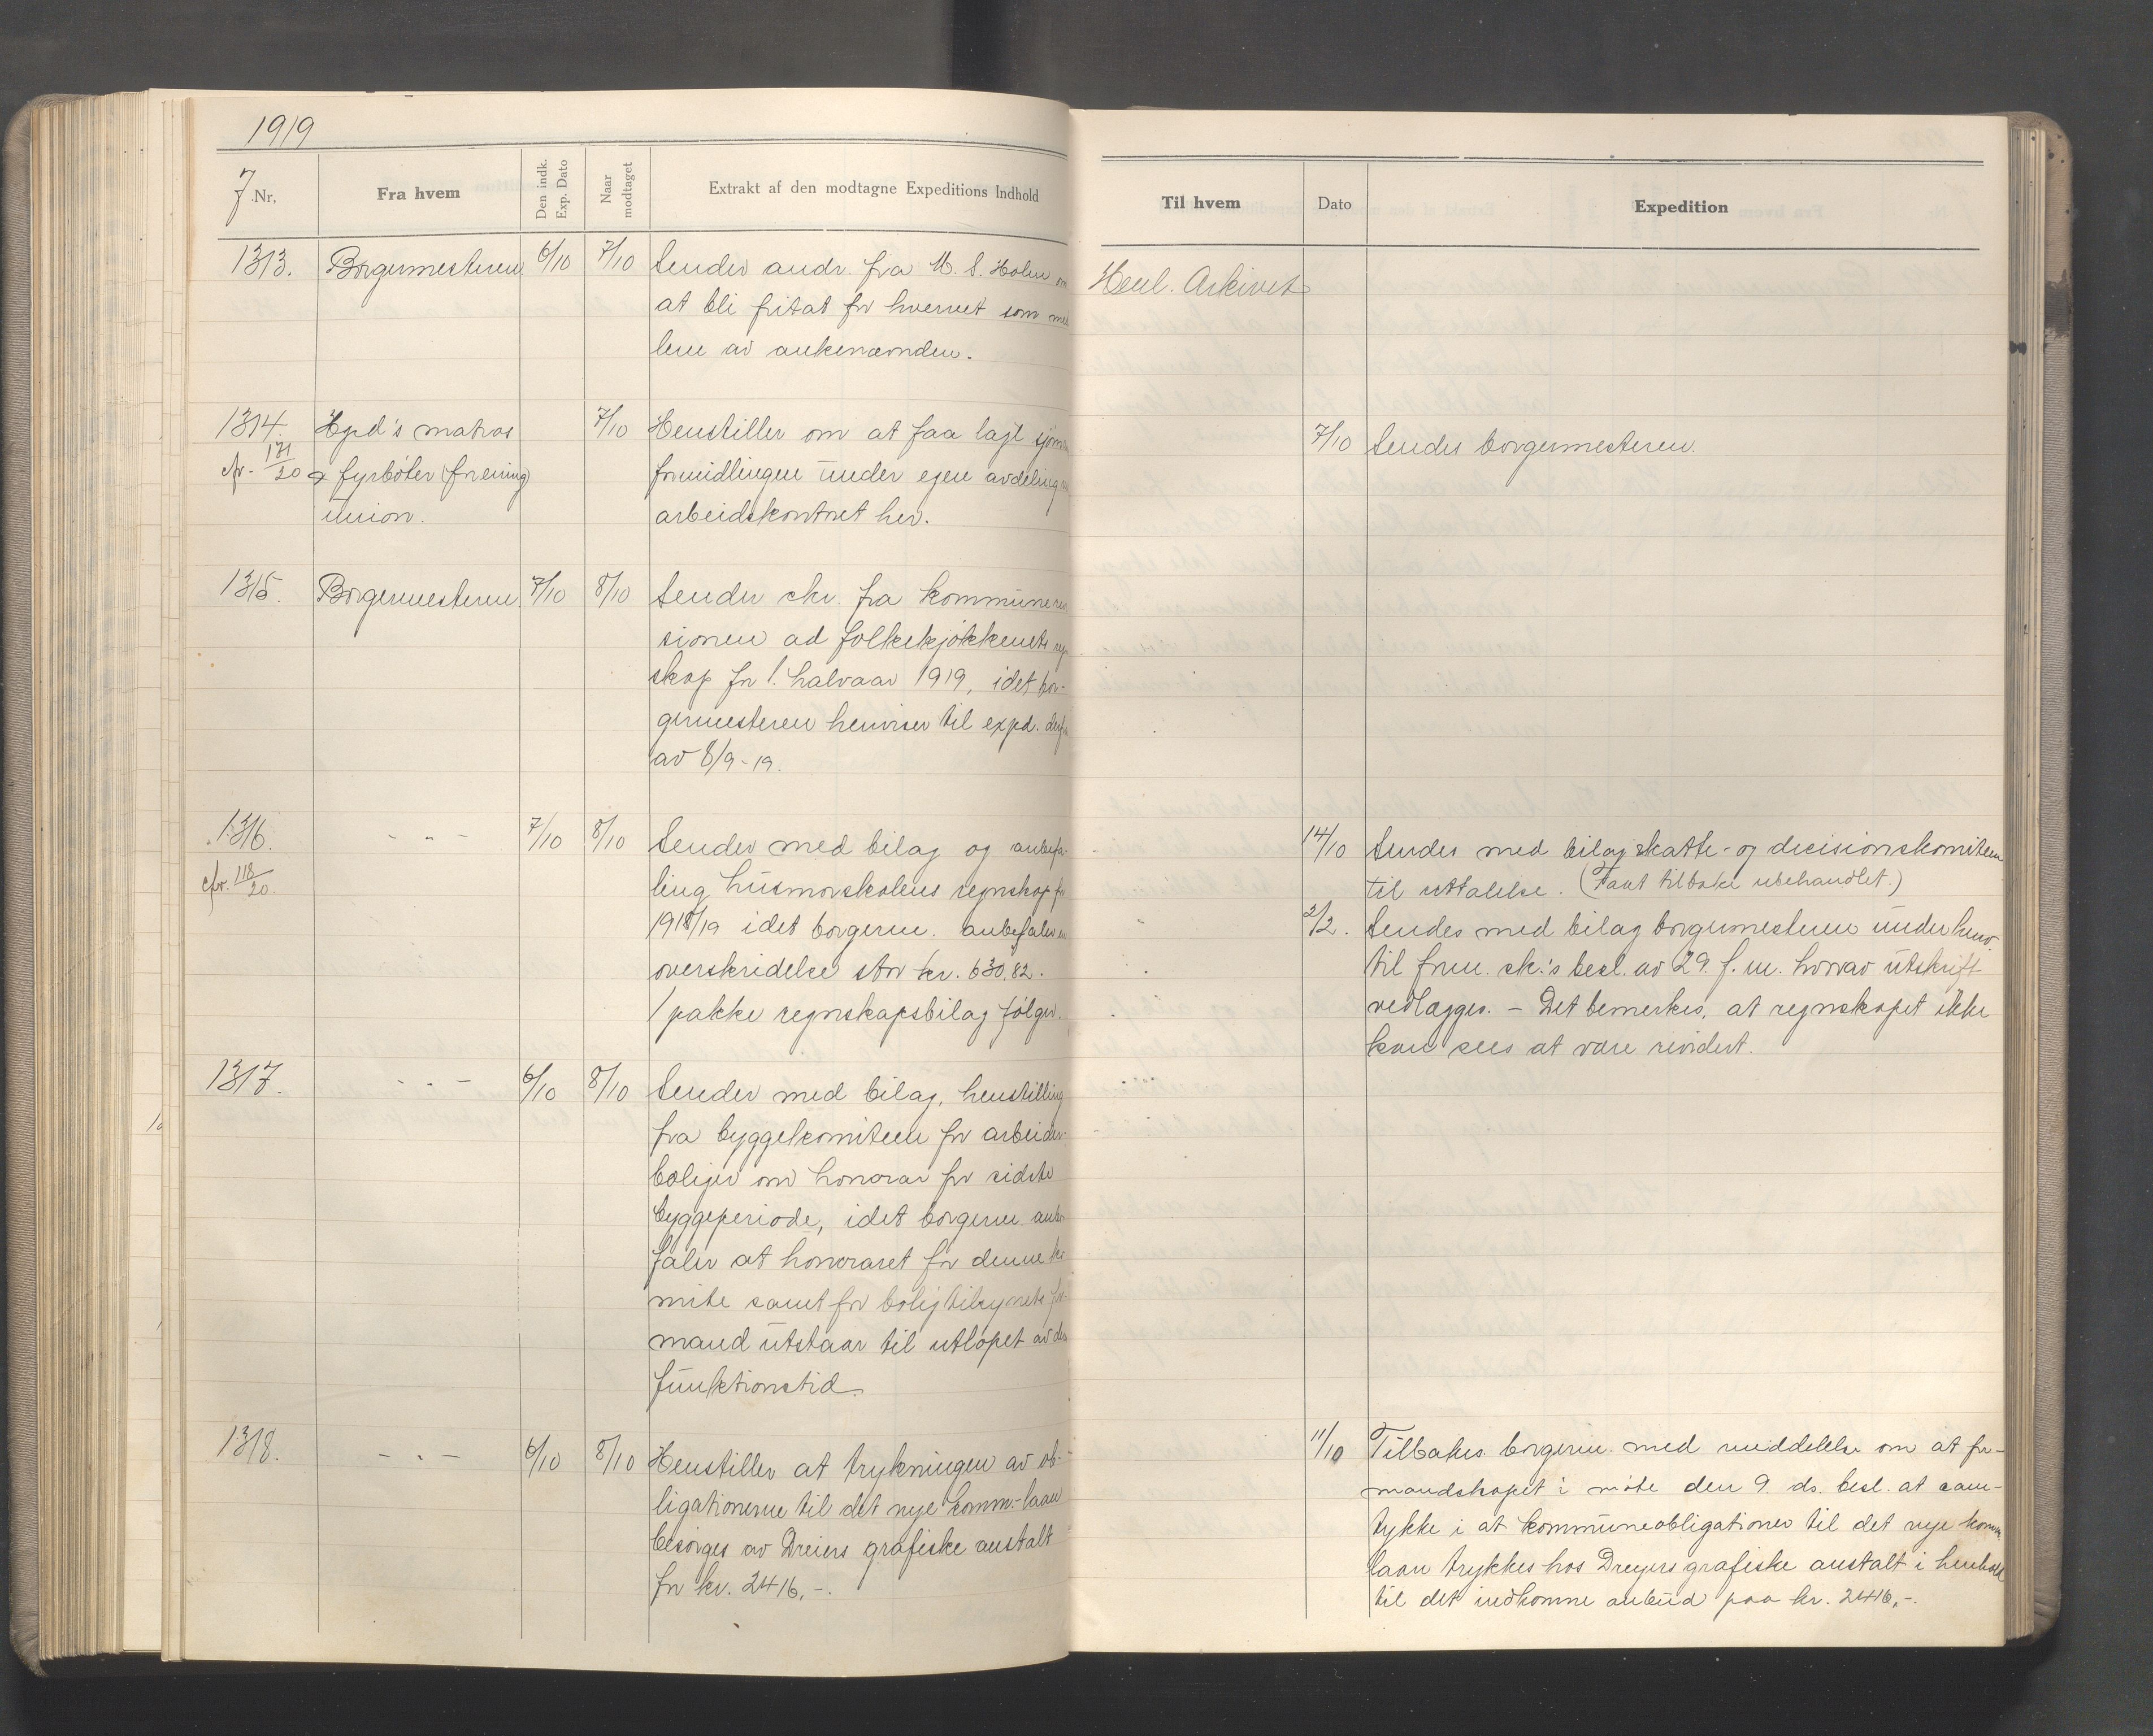 1919
J. Nr,
Fra hvem
Den indk. Exp. Dato
Naar modtaget
Extrakt af den modtagne Expeditions Indhold
Til hvem
Dato
Expedition
1313.
Borgermesteren
6/10
7/10
Sender andr. fra M. S. Holm om
at bli fritat for hvervet som med
lem av ankenævnden.
Henl. Arkivet
1314.
cfr. 171/20
Hgsd's matros
& fyrbøter (forening)
union.
7/10
Henstiller om at faa lagt sjømands
formidlingen under egen avdeling
arbeidskontoret her.
7/10
Sendes borgermesteren.
1315.
Borgermesteren
7/10
8/10
Sender skr. fra kommunerevi
sionen ad folkekjøkkenets regn
skap for 1. halvaar 1919, idet bor-
germesteren henviser til expd. derfra
av 8/9-19.
1316.
cfr. 118/20.
- " -
7/10
8/10
Sender med bilag og anbefa-
ling husmorskolens regnskap for
1918/19 idet borgerm. anbefaler en
overskridelse stor kr. 630.82.
1 pakke regnskapsbilag følger.
14/10
Sendes med bilag skatte- og decisionskomiteen
til uttalelse. (Faat tilbake ubehandlet.)
2/2.
Sendes med bilag borgermesteren under henv.
til form. sk.'s besl. av 29. f. m. hvorav utskrift
vedlægges. - Det bemerkes, at regnskapet ikke
kan sees at være revidert.
1317.
- " -
6/10
8/10
Sender med bilag, henstilling
fra byggekomiteen for arbeider-
boliger om honorar for sidste
byggeperiode, idet borgerm. anbe
faler at honoraret for denne ko
mite samt for boligtilsynets for-
mand utstaar til utløpet av den
funktionstid.
1318.
- " -
6/10
8/10
Henstiller at trykningen av ob-
ligationerne til det nye komm.-laan
besørges av Dreiers grafiske anstalt
for kr. 2416,-.
11/10
Tilbakes. borgerm. med meddelelse om at for-
mandskapet i møte den 9. ds. besl. at sam-
tykke i at kommuneobligationer til det nye komm.
laan trykkes hos Dreyers grafiske anstalt i henhold
til det indkomne anbud paa kr. 2416,-.